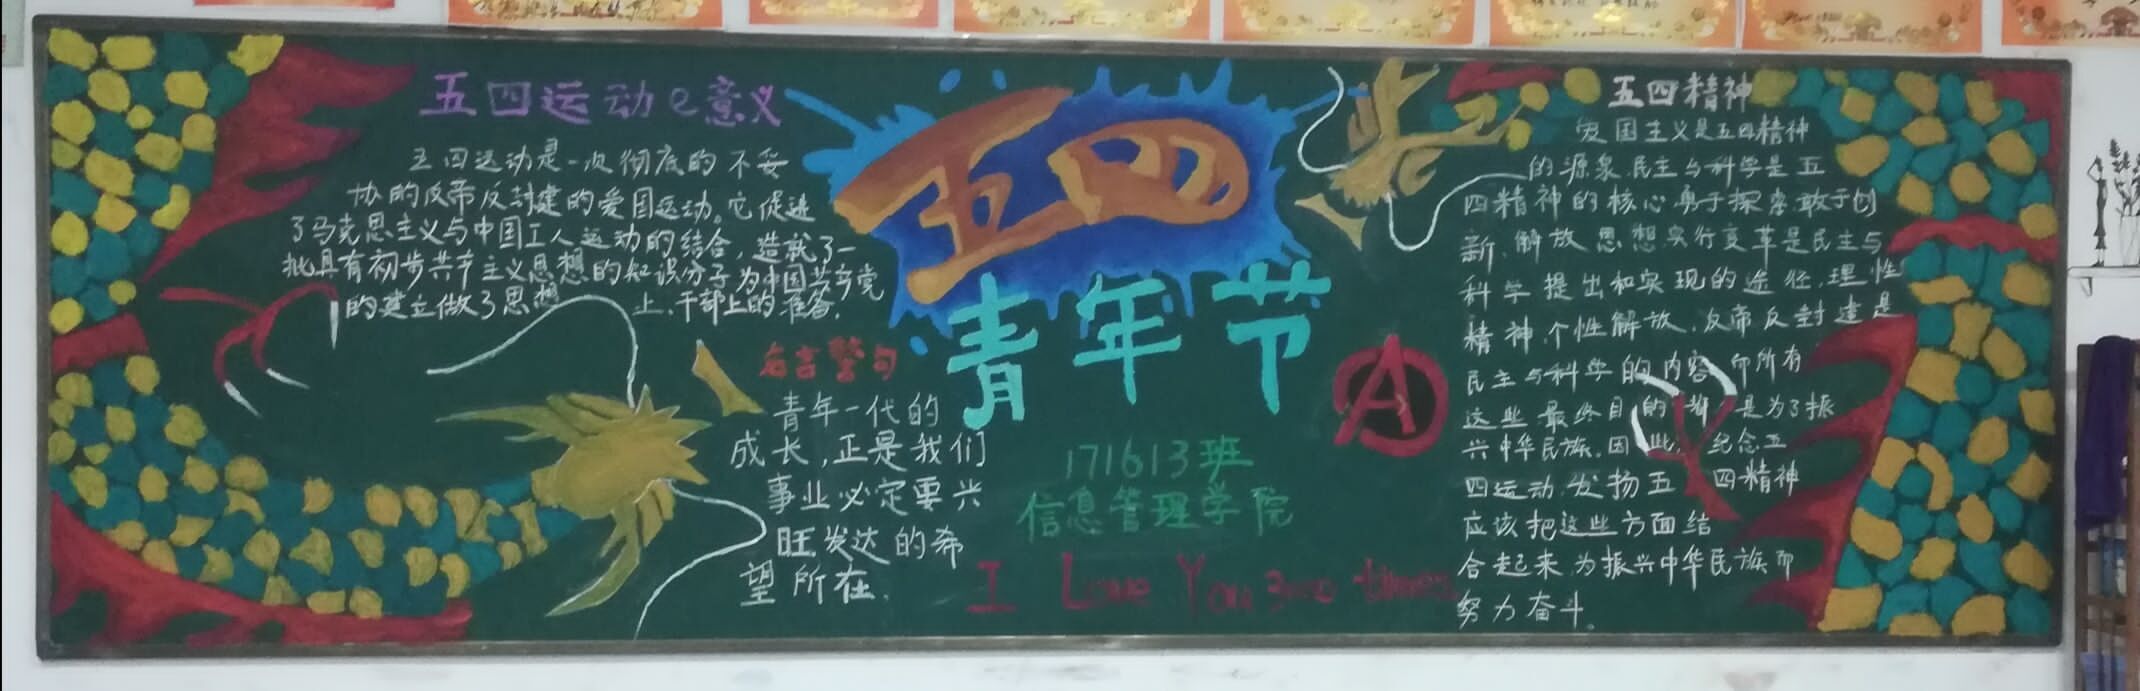 五四运动e意义
五四运动是一次彻底的不妥
协的反帝反封建的爱国运动。它促进
了马克思主义与中国工人运动的结合，造就了一
批具有初步共产主义思想的知识分子为中国共产党
的建立做了思想 上.干部上的准备.
名言警句
青年一代的
成长,正是我们
事业必定要兴
旺发达的希
望所在.
五四
青年节
A
171613班
信息管理学院
I Love You 3000 times
五四精神
爱国主义是五四精神
的源泉.民主与科学是五
四精神的核心勇于探索.敢于创
新.解放思想实行变革是民主与
科学提出和实现的途径.理性
精神.个性解放.反帝反封建是
民主与科学的内容 而所有
这些最终目的都是为了振
兴中华民族.因此,纪念五
四运动.发扬五四精神
应该把这些方面结
合起来.为振兴中华民族而
努力奋斗.